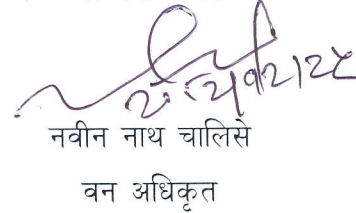 नवीन नाथ चालिसे
वन अधिकृत